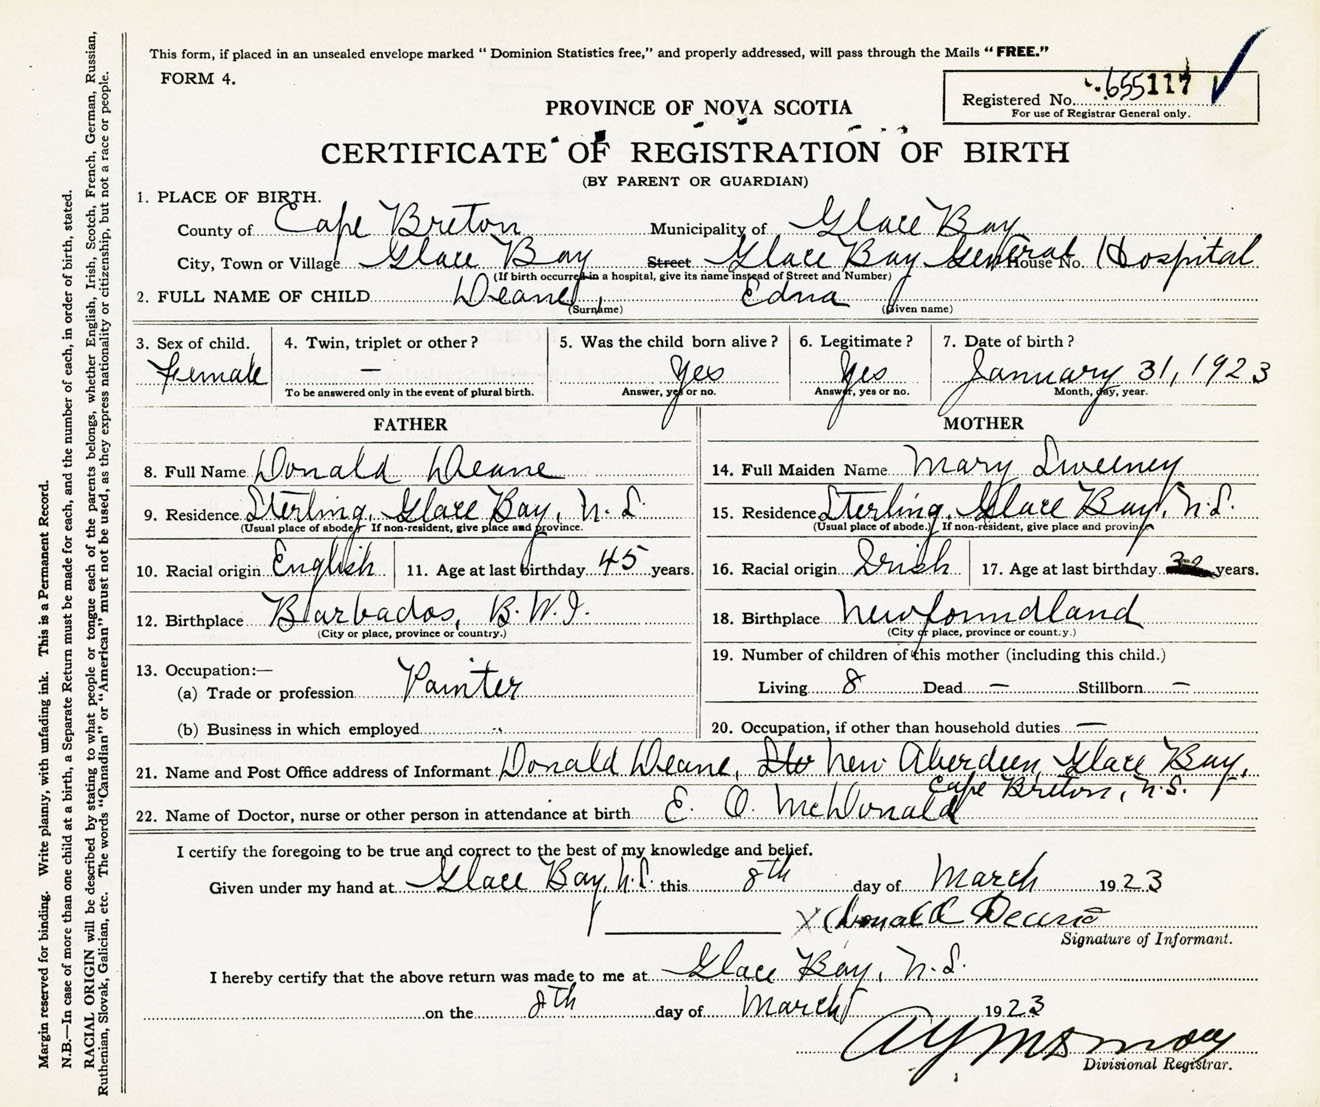 This form, if placed in an unsealed envelope marked "Dominion Statistics free," and properly addressed, will pass through the Mails "FREE."
FORM 4.
Registered No. 655117
For use of Registrar General only.
PROVINCE OF NOVA SCOTIA
CERTIFICATE OF REGISTRATION OF BIRTH
(BY PARENT OR GUARDIAN)
1. PLACE OF BIRTH.
County of Cape Breton Municipality of Glace Bay
City, Town or Village Glace Bay Street Glace Bay General House No. Hospital
(If birth occurred in a hospital, give its name instead of Street and Number)
2. FULL NAME OF CHILD Deane, Edna
(Surname) (Given name)
3. Sex of child. Female
4. Twin, triplet or other? —
To be answered only in the event of plural birth.
5. Was the child born alive? Yes
Answer, yes or no.
6. Legitimate? Yes
Answer, yes or no.
7. Date of birth? January 31, 1923
Month, day, year.
FATHER
8. Full Name Donald Deane
9. Residence Sterling, Glace Bay, N.S.
(Usual place of abode. If non-resident, give place and province.
10. Racial origin English 11. Age at last birthday 45 years.
12. Birthplace Barbados, B.W.I.
(City or place, province or country.)
13. Occupation:—
(a) Trade or profession Painter
(b) Business in which employed --
MOTHER
14. Full Maiden Name Mary Sweeney
15. Residence Sterling, Glace Bay, N.S.
(Usual place of abode.) If non-resident, give place and province
16. Racial origin Irish 17. Age at last birthday years.
18. Birthplace Newfoundland
(City or place, province or country.)
19. Number of children of this mother (including this child.)
Living 8 Dead — Stillborn —
20. Occupation, if other than household duties —
21. Name and Post Office address of Informant Donald Deane, New Aberdeen, Glace Bay,
Cape Breton, N.S.
22. Name of Doctor, nurse or other person in attendance at birth E. O. McDonald
I certify the foregoing to be true and correct to the best of my knowledge and belief.
Given under my hand at Glace Bay, N.S. this 8th day of March 1923
X Donald Deane
Signature of Informant.
I hereby certify that the above return was made to me at Glace Bay, N.S.
on the 8th day of March 1923
Divisional Registrar.
Margin reserved for binding. Write plainly, with unfading ink. This is a Permanent Record.
N.B.—In case of more than one child at a birth, a Separate Return must be made for each, and the number of each, in order of birth, stated.
RACIAL ORIGIN will be described by stating to what people or tongue each of the parents belongs, whether English, Irish, Scotch, French, German, Russian,
Ruthenian, Slovak, Galician, etc. The words "Canadian" or "American" must not be used, as they express nationality or citizenship, but not a race or people.